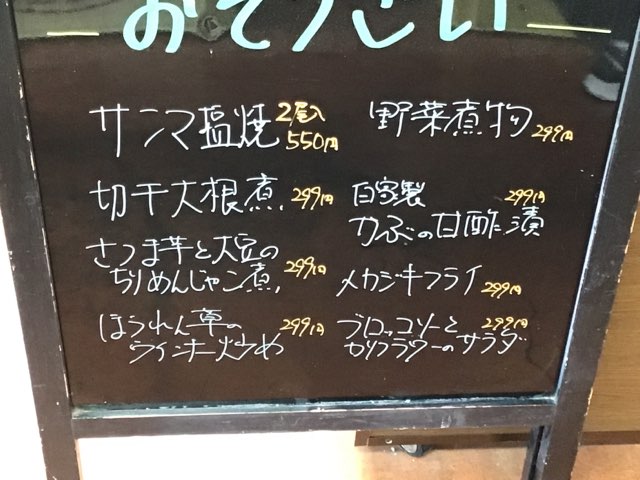 おそうざい
サンマ塩焼 2尾入 550円
野菜煮物 299円
切干大根煮 299円
自家製 299円
かぶの甘酢漬
さつま芋と大豆の
ちりめんじゃこ煮 299円
メカジキフライ 299円
ほうれん草の 299円
ウインナー炒め
ブロッコリーと 299円
カリフラワーのサラダ